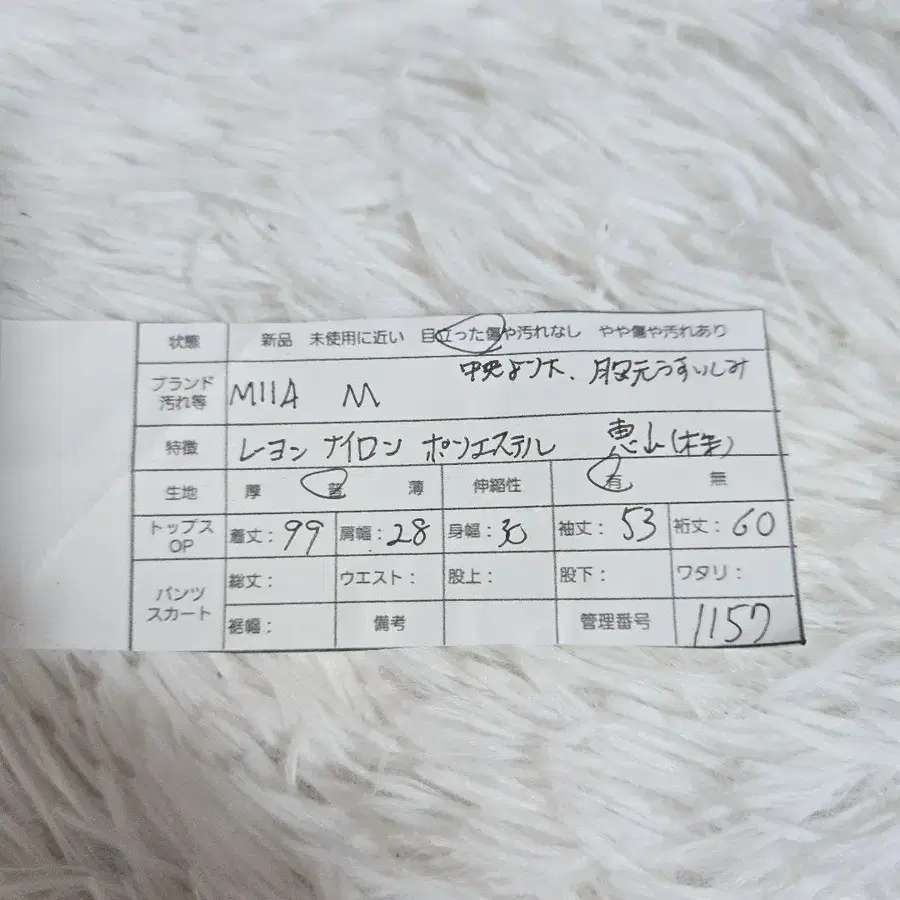 状態 新品 未使用に近い 目立った傷や汚れなし やや傷や汚れあり
ブランド 中央よゴレ、胸元うすいしみ
汚れ等 MIIA M
特徴 レーヨン ナイロン ポリエステル 恵山(株)
生地 厚 普 薄 伸縮性 有 無
トップス OP 着丈:99 肩幅:28 身幅:30 袖丈:53 裄丈:60
パンツ スカート 総丈: ウエスト: 股上: 股下: ワタリ:
裾幅: 備考 管理番号 1157